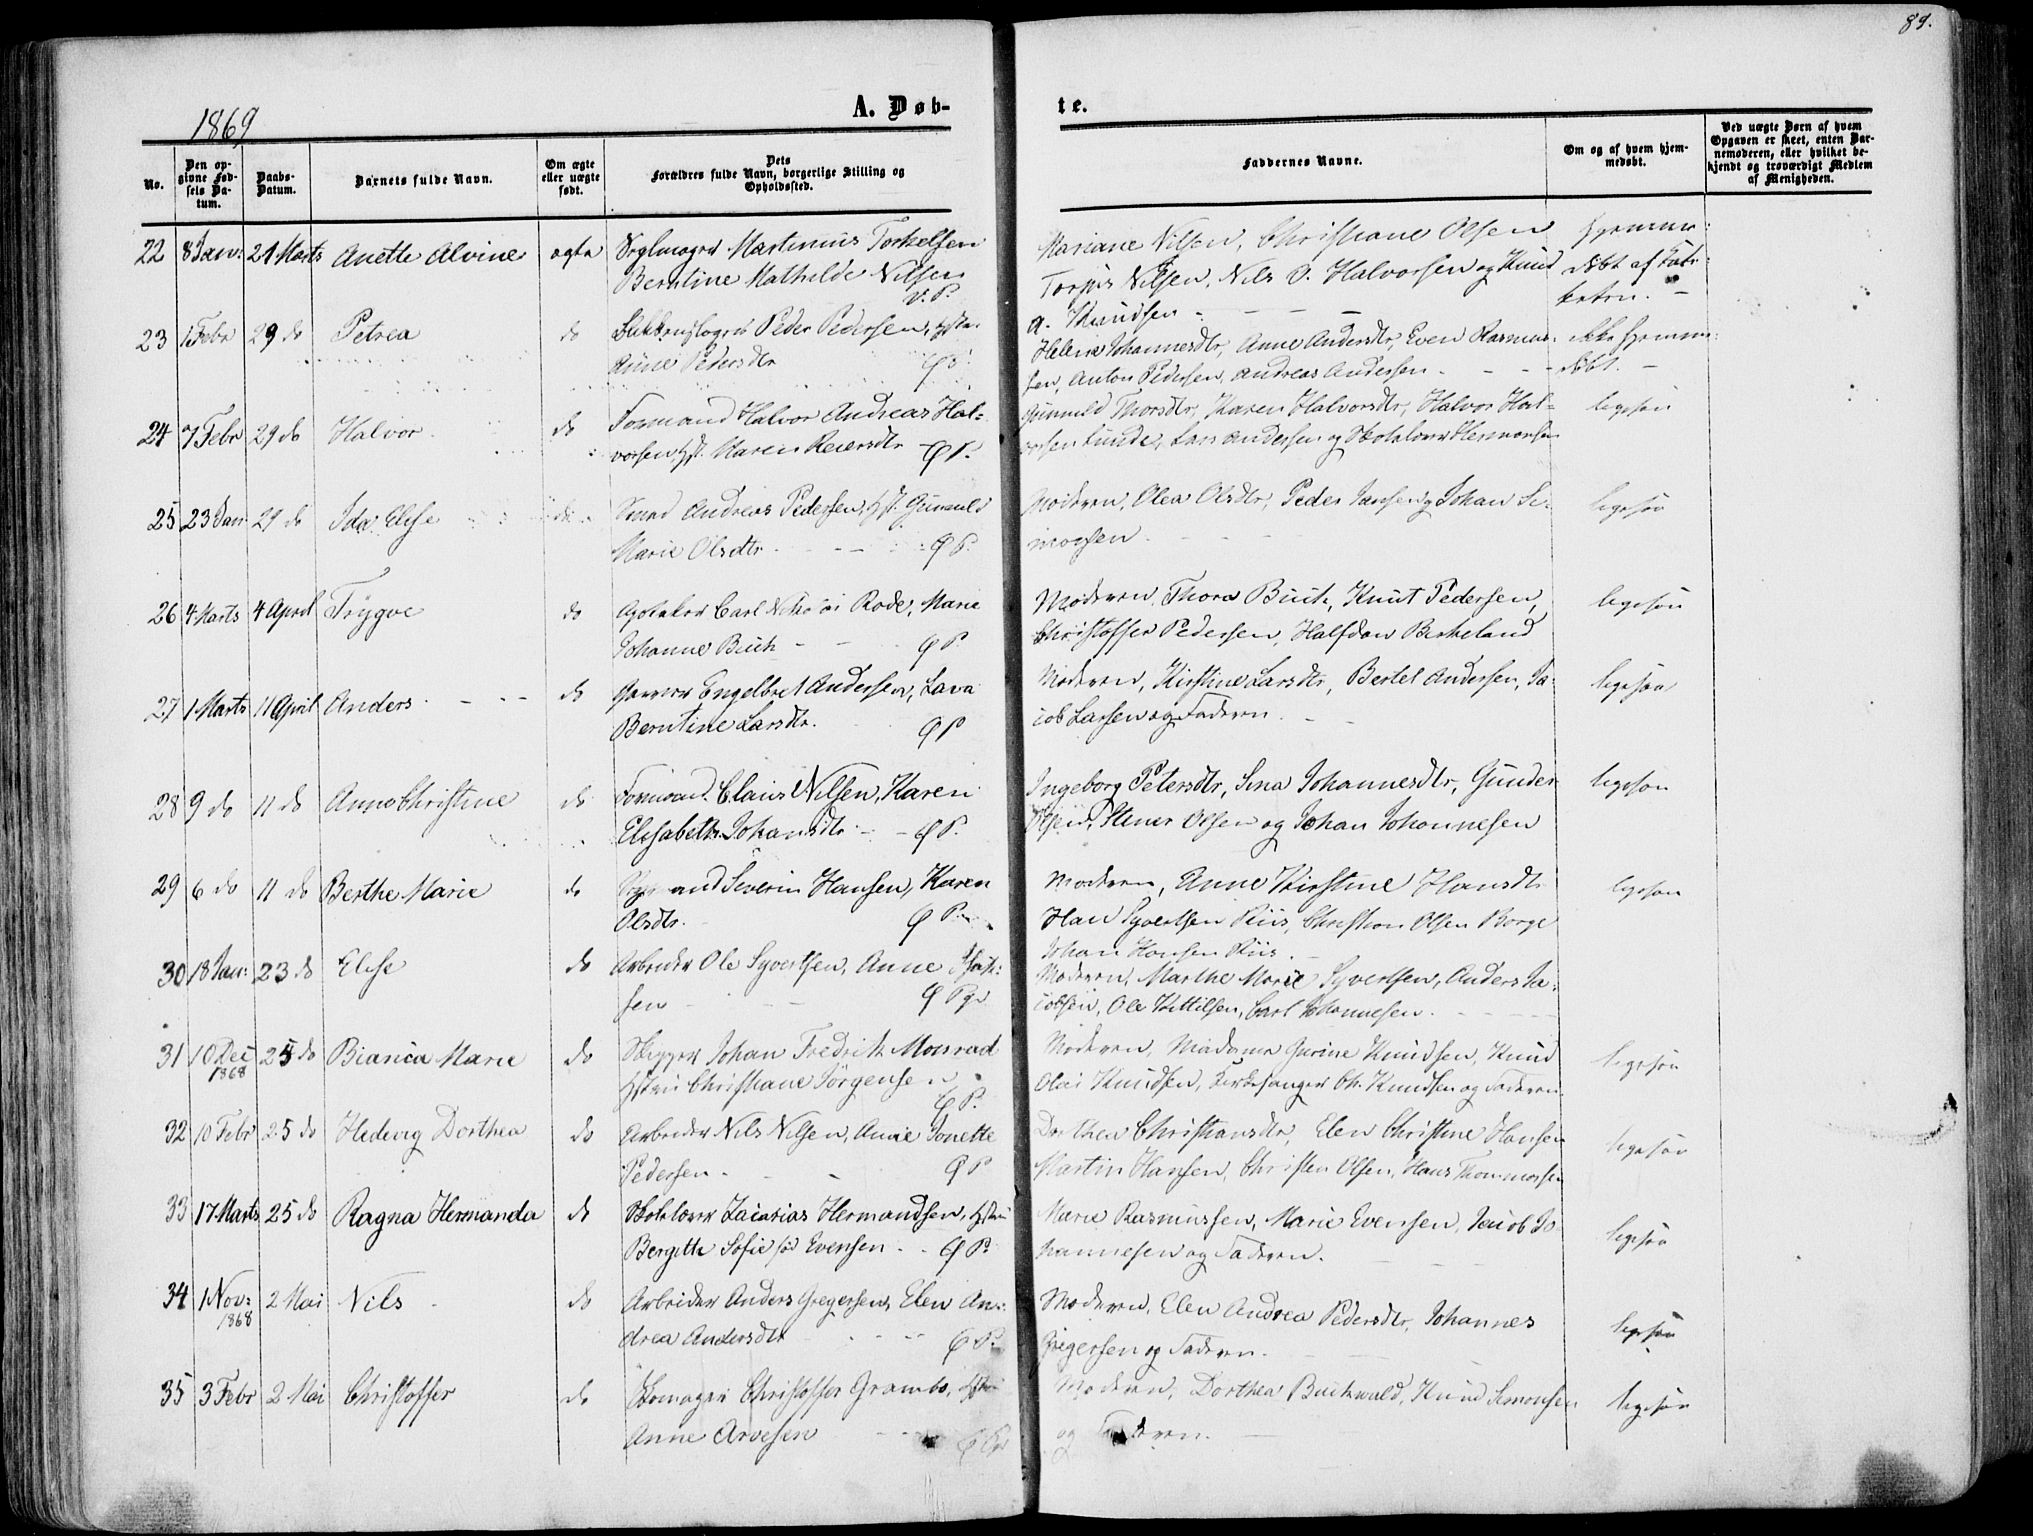 89.
1869
A. Døb-
te.
No.
Den op-
givne Fød-
sels Da-
tum.
Daabs-
Datum.
Barnets fulde Navn.
Om ægte
eller uægte
født.
Dets
Forældres fulde Navn, borgerlige Stilling og
Opholdssted.
Faddernes Navne.
Om og af hvem hjem-
medøbt.
Ved uægte Børn af hvem
Opgaven er skeet, enten Bar-
nemoderen, eller hvilket be-
kjendt og troværdigt Medlem
af Menigheden.
22 8 Jan: 21 Marts Anette Alvine ægte Seglmager Martinius Torkelsen
Berntine Mathilde Nilsen
Mariane Nilsen, Christiane Olsen
Torjus Nilsen, Nils O. Halvorsen og Knud
A. Knudsen
hjemme:
døbt af
23 1 Febr 29 do Petrea do Peder Pedersen,
Anne Pedersdtr
Helene Johannesdtr, Anne Andersdtr, Even Rasmus-
sen, Anton Pedersen, Andreas Andersen
ikke hjemme
døbt.
24 7 Febr 29 do Halvor do Formand Halvor Andreas Hal-
vorsen, Hst. Maren Reiersdtr
Gunnild Thorsdtr, Karen Halvorsdtr, Halvor Hal-
vorsen Lunde, Lars Andersen og Hermansen
ligesaa
25 23 Jan 29 do Ida Elise do Smed Andreas Pedersen, Hst. Gunnild
Marie Olsdtr
Moderen, Olea Olsdtr, Peder Jansen og Johan Si-
monsen
ligesaa
26 4 Marts 4 April Trygve do Apotheker Carl Rode, Marie
Johanne Buch
Moderen, Thora Buch, Knut Pedersen,
Christoffer Pedersen, Halfdan Berkeland
ligesaa
27 1 Marts 11 April Anders do Garver Engelbret Andersen, Lava
Berntine Larsdtr.
Moderen, Kirstine Larsdtr, Bertel Andersen, Ja-
cob Larsen og Faderen
ligesaa
28 9 do 11 do Anna Christine do Formand Claus Nilsen, Karen
Elisabeth Johansdtr
Ingeborg Petersdtr, Sina Johannesdtr, Gunder
Olsen, Stener Olsen og Johan Johannesen
ligesaa
29 6 do 11 do Berthe Marie do Severin Hansen, Karen
Olsdtr.
Moderen, Anne Kirstine Hansdtr
Hans Syvertsen Riis, Christian Olsen Borge
Johan Hansen Riis
ligesaa
30 18 Jan: 23 do Elise do Arbeider Ole Syvertsen, Anne
sen
Moderen, Marthe Marie Syvertsen, Anders Ja-
cobsen, Ole Kittilsen, Carl Johannesen
31 10 Dec 1868 25 do Bianca Marie do Skipper Johan Fredrik Monrad
Hstru Christiane Jørgensen
Moderen, Madame Gurine Knudsen, Knud
Olai Knudsen, Kirkesanger Ch. Knudsen og Faderen
ligesaa
32 10 Febr 25 do Hedevig Dorthea do Arbeider Nils Nilsen, Anne Jonette
Pedersen
Dorthea Christiansdtr, Elen Christine Hansen
Martin Hansen, Christen Olsen, Hans Thommassen
ligesaa
33 17 Marts 25 do Ragna Hermanda do Skolelærer Zacarias Hermandsen, Hstru
Bergitte Sofie fød Evensen
Marie Rasmussen, Marie Evensen, Jacob Jo-
hannesen og Faderen.
ligesaa
34 1 Nov: 1868 2 Mai Nils do Arbeider Anders Gregersen, Elen An-
drea Andersdtr
Moderen, Elen Andrea Pedersdtr, Johannes
Gregersen og Faderen.
ligesaa
35 3 Febr 2 Mai Christoffer do Skomager Christoffer Grambo, Hstru
Anne Arvesen
Moderen, Dorthea Buchwald, Knud Simonsen
og Faderen.
ligesaa